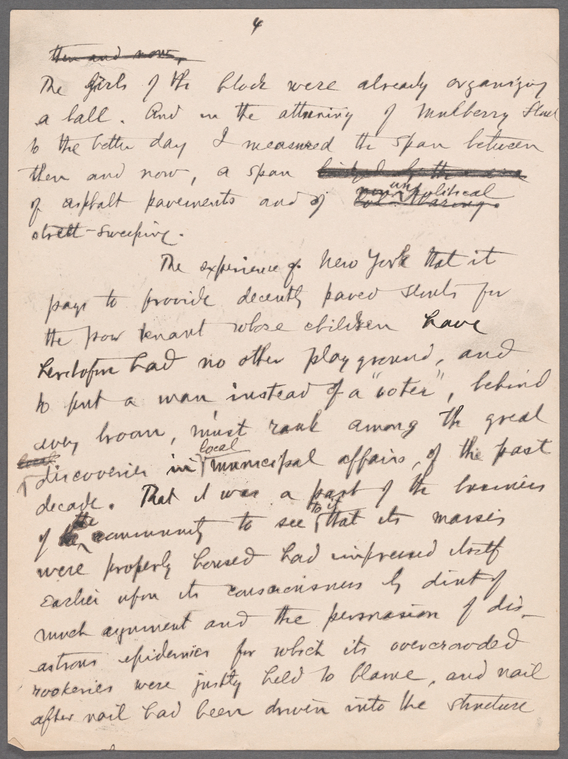 4
then and now,
The Girls of the block were already organizing
a ball. And in the attuning of Mulberry Street
to the better day I measured the span between
then and now, a span
of asphalt pavements and of unpolitical
street-sweeping.
The experience of New York that it
pays to provide decently paved streets for
the poor tenant whose children have
heretofore had no other playground, and
to put a man instead of a "voter", behind
every broom, must rank among the great
local
local
discoveries in municipal affairs, of the past
decade. That it was a part of the business
of the community to see to it that its masses
were properly housed had impressed itself
earlier upon its consciousness by dint of
much argument and the persuasion of dis-
astrous epidemics for which its overcrowded
rookeries were justly held to blame, and nail
after nail had been driven into the structure